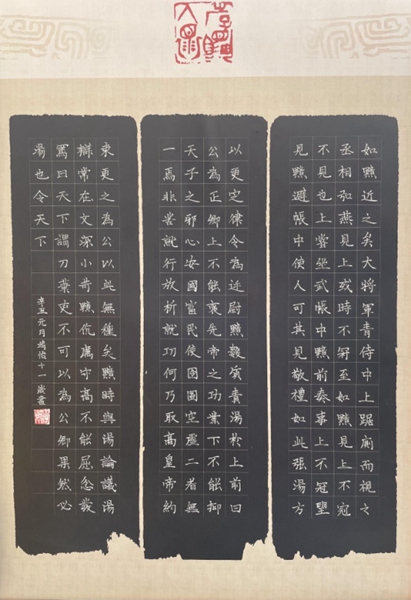 如黯近之矣大將軍青侍中上踞廁而視之
丞相弘燕見上或時不冠至如黯見上不冠
不見也上嘗坐武帳中黯前奏事上不冠望
見黯避帳中使人可其見敬禮如此張湯方
以更定律令為廷尉黯數質責湯於上前曰
公為正卿上不能褒先帝之功業下不能抑
天子之邪心安國富民使囹圄空虛二者無
一焉非苦就行放析就功何乃取高皇帝約
束更之為公以此無種矣黯時與湯論議湯
辯常在文深小苛黯伉厲守高不能屈忿發
罵曰天下謂刀筆吏不可以為公卿果然必
湯也令天下
辛丑元月怡十一歲書